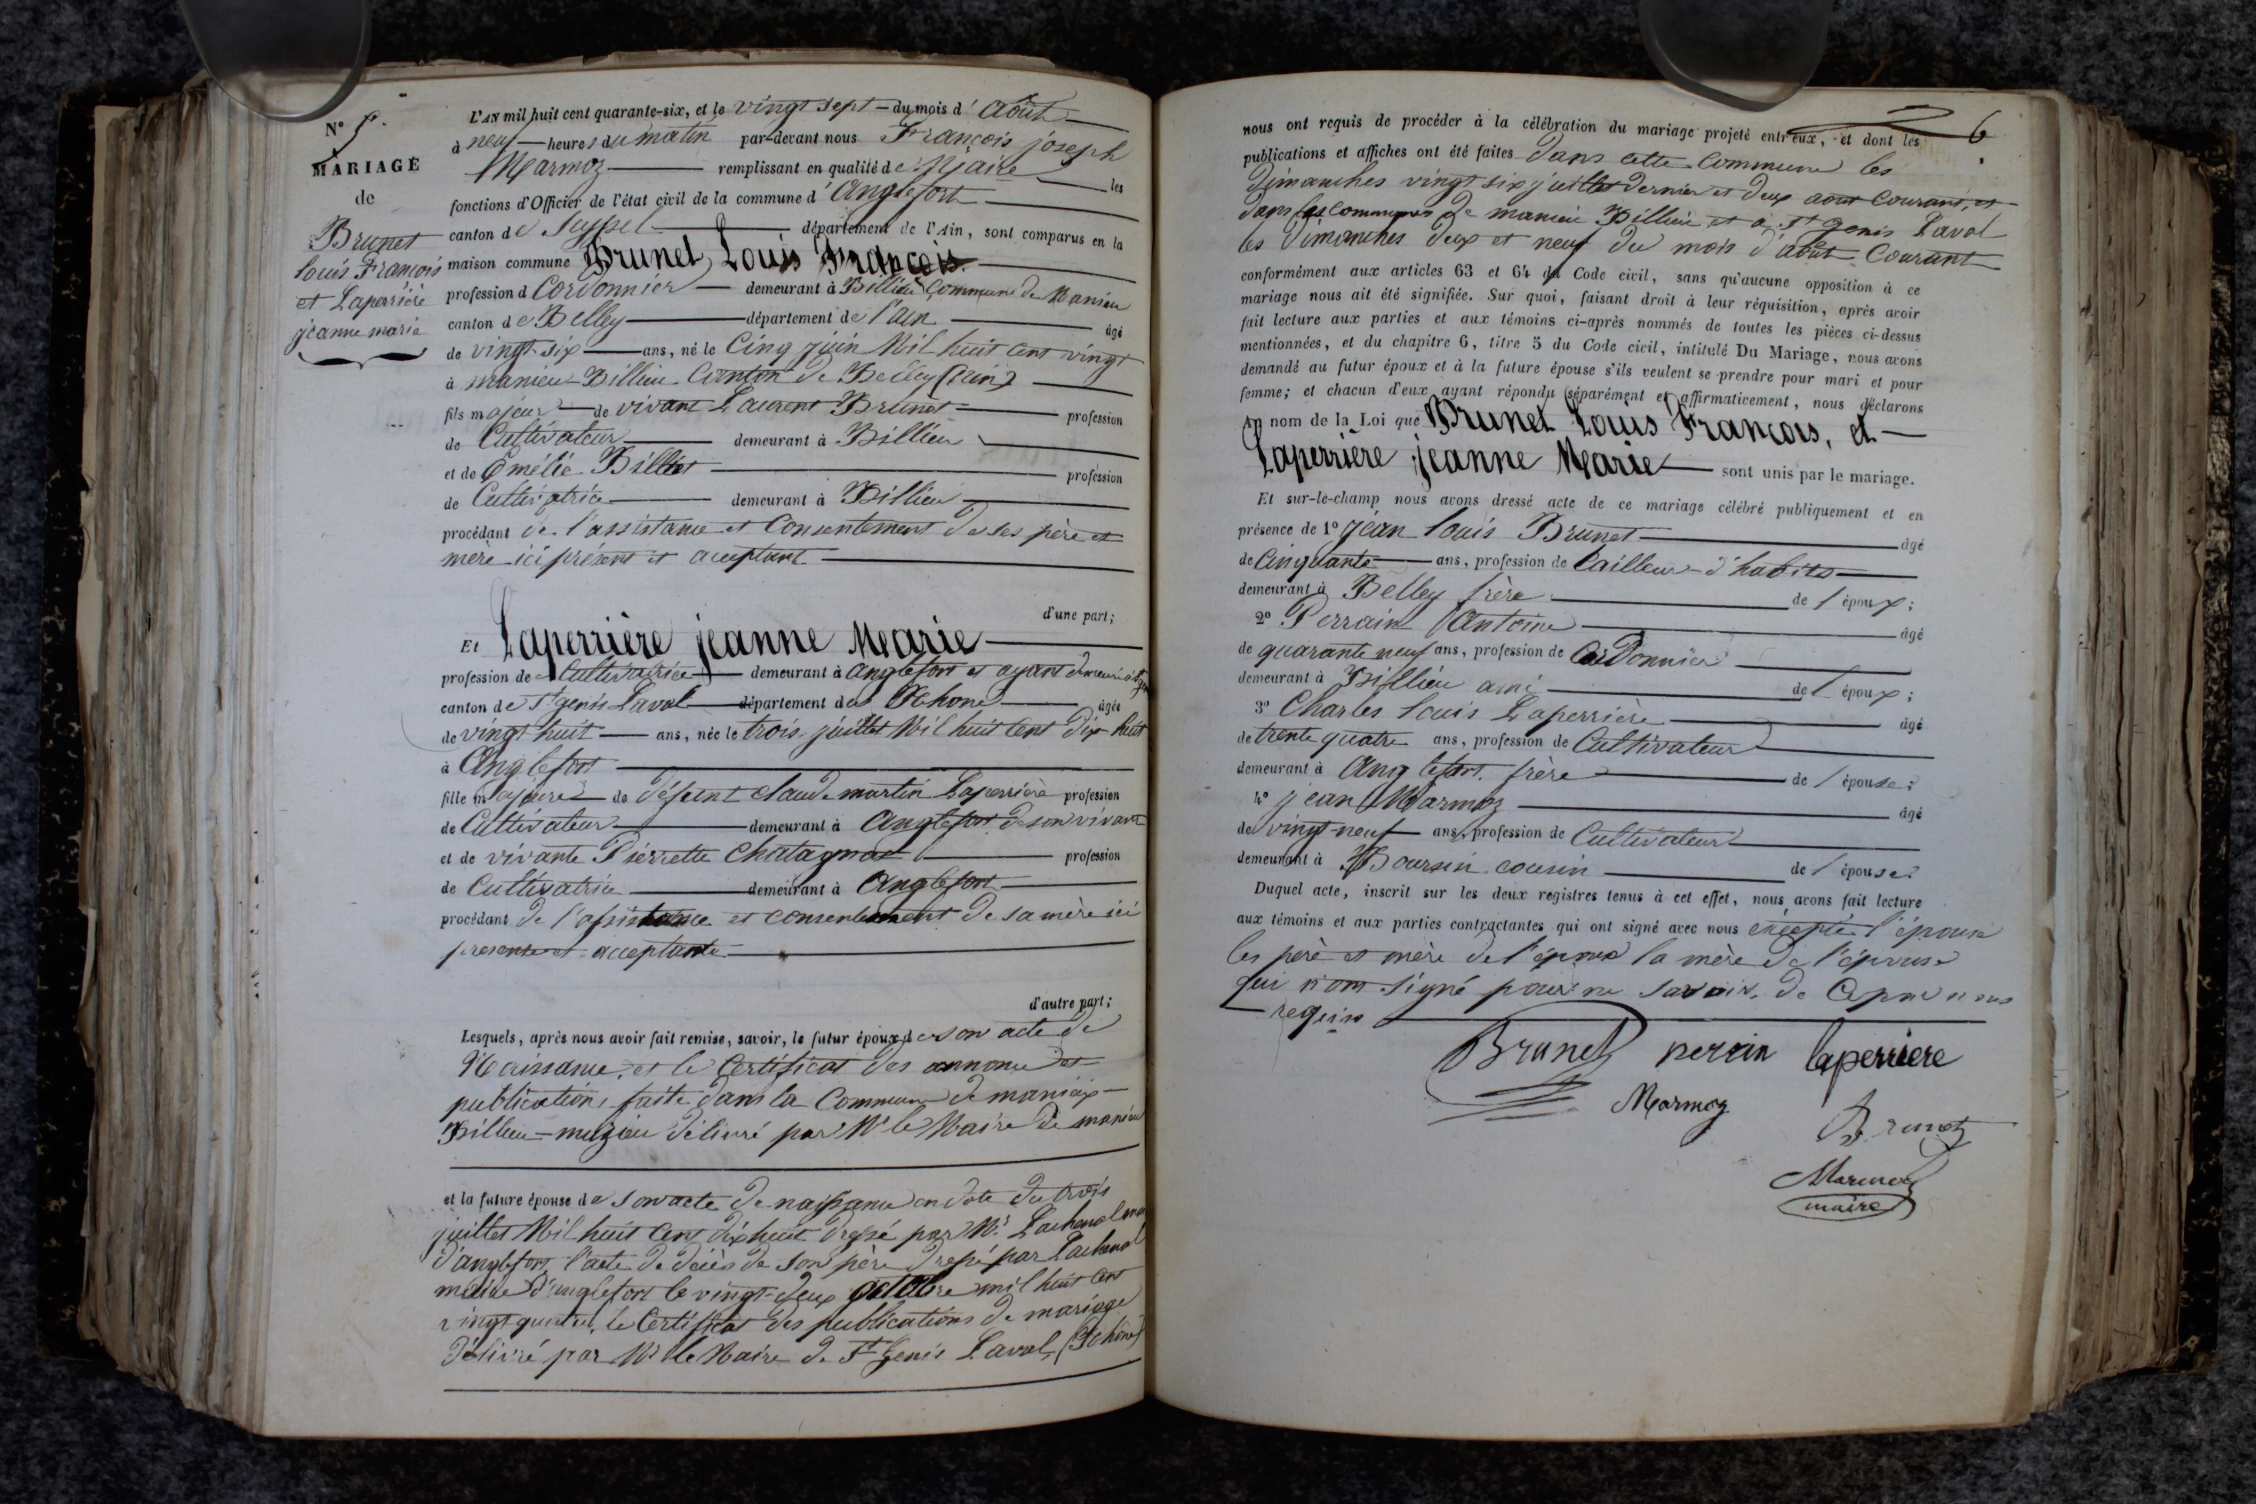 N° 5.
MARIAGE
de
Brunet
louis François
et Laperrière
jeanne marie
L'AN mil huit cent quarante-six, et le vingt sept du mois d'Août
à neuf heures du matin par-devant nous François joseph
Marmoz remplissant en qualité de Maire les
fonctions d'Officier de l'état civil de la commune d'Anglefort
canton de Seyssel département de l'Ain, sont comparus en la
maison commune Brunet, Louis François.
profession d Cordonnier demeurant à Billieu Commune de Manieu
canton de Belley département de l'ain âgé
de vingt-six ans, né le Cinq juin Mil huit cent vingt
à manieu-Billieu Canton de Belley (Ain)
fils majeur de vivant Laurent Brunet profession
de Cultivateur demeurant à Billieu
et de Emélie Billiet profession
de Cultivatrice demeurant à Billieu
procédant de l'assistance et Consentement de ses père et
mère ici présent et aceptant
d'une part;
Et Laperrière jeanne Marie
profession de Cultivatrice demeurant à anglefort et ayant demeuré à
canton de St genis Laval département du Rhone âgée
de vingt huit ans, née le trois juillet Mil huit Cent Dix huit
à Anglefort
fille majeure de défeunt claude martin Laperrière profession
de Cultivateur demeurant à Anglefort de son vivant
et de vivante Pierrette Chatagnat profession
de Cultivatrice demeurant à Anglefort
procédant de l'assistance et consentement de sa mère ici
presente et acceptante
d'autre part;
Lesquels, après nous avoir fait remise, savoir, le futur époux de son acte de
Naissance, et le Certificat des annonce et
publications faite dans la Commune de
Billieu délivré par Mr le Maire de manieu
et la future épouse de son acte de naissance en date du trois
juillet Mil huit Cent dix huit dressé par Mr. Lachenal
d'anglefort, l'acte de décès de son père dressé par Lachenal
maire d'anglefort le vingt-deux octobre mil huit cent
vingt, le Certificat des publications de mariage
délivré par Mr le Maire de St Genis Laval, (Rhône)
6
nous ont requis de procéder à la célébration du mariage projeté entr'eux, et dont les
publications et affiches ont été faites dans cette Commune les
Dimanches vingt six juillet dernier et deux aout Courant, et
dans les communes de manieu Billieu et à St genis Laval
les Dimanches deux et neuf du mois d'août Courant
conformément aux articles 63 et 64 du Code civil, sans qu'aucune opposition à ce
mariage nous ait été signifiée. Sur quoi, faisant droit à leur réquisition, après avoir
fait lecture aux parties et aux témoins ci-après nommés de toutes les pièces ci-dessus
mentionnées, et du chapitre 6, titre 5 du Code civil, intitulé Du Mariage, nous avons
demandé au futur époux et à la future épouse s'ils veulent se prendre pour mari et pour
femme; et chacun d'eux ayant répondu séparément et affirmativement, nous déclarons
au nom de la Loi que Brunet Louis François, et
Laperrière jeanne Marie sont unis par le mariage.
Et sur-le-champ nous avons dressé acte de ce mariage célébré publiquement et en
présence de 1° jean louis Brunet âgé
de Cinquante ans, profession de tailleur d'habits
demeurant à Belley frère de l'époux;
2° Perrain Antoine âgé
de quarante neuf ans, profession de Cordonnier
demeurant à Billieu ami de l'époux;
3° Charles louis Laperrière âgé
de trente quatre ans, profession de Cultivateur
demeurant à Anglefort. frère de l'épouse;
4° jean Marmoz âgé
de vingt-neuf ans, profession de Cultivateur
demeurant à cousin de l'épouse;
Duquel acte, inscrit sur les deux registres tenus à cet effet, nous avons fait lecture
aux témoins et aux parties contractantes qui ont signé avec nous excepté l'épouse
les père et mère de l'époux la mère de l'épouse
qui n'ont signé pour ne savoir, de ce
requis
Brunet perrin laperriere
Marmoz
Brunet
Marmoz
maire